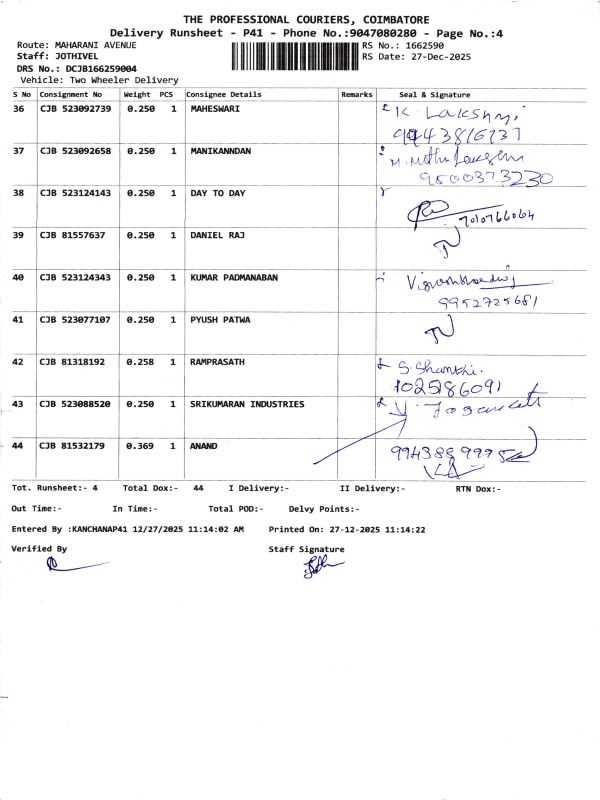 THE PROFESSIONAL COURIERS, COIMBATORE
Delivery Runsheet - P41 - Phone No.:9047080280 - Page No.:4
Route: MAHARANI AVENUE RS No.: 1662590
Staff: JOTHIVEL RS Date: 27-Dec-2025
DRS No.: DCJB166259004
Vehicle: Two Wheeler Delivery
S No Consignment No Weight PCS Consignee Details Remarks Seal & Signature
36 CJB 523092739 0.250 1 MAHESWARI K. Lakshmi
37 CJB 523092658 0.250 1 MANIKANNDAN
9500373230
38 CJB 523124143 0.250 1 DAY TO DAY
7010766064
39 CJB 81557637 0.250 1 DANIEL RAJ
40 CJB 523124343 0.250 1 KUMAR PADMANABAN
9952725681
41 CJB 523077107 0.250 1 PYUSH PATWA
42 CJB 81318192 0.258 1 RAMPRASATH S. Shanthi.
1025186091
43 CJB 523088520 0.250 1 SRIKUMARAN INDUSTRIES
44 CJB 81532179 0.369 1 ANAND
Tot. Runsheet:- 4 Total Dox:- 44 I Delivery:- II Delivery:- RTN Dox:-
Out Time:- In Time:- Total POD:- Delvy Points:-
Entered By :KANCHANAP41 12/27/2025 11:14:02 AM Printed On: 27-12-2025 11:14:22
Verified By Staff Signature